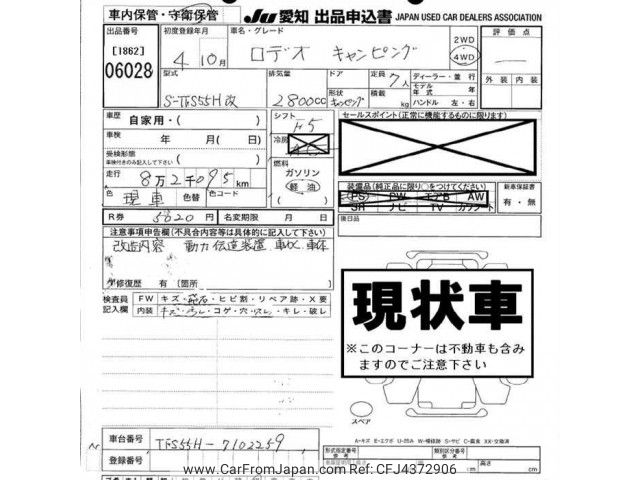 車内保管・守衛保管
JU 愛知 出品申込書 JAPAN USED CAR DEALERS ASSOCIATION
出品番号 [1862] 06028
初度登録年月 4年10月
車名・グレード ロデオ キャンピング
2WD 4WD
評価点 —
外装 内装
型式 S-TFS55H改
排気量 2800cc
ドア 形状 キャンピング
定員 7人
積載 kg
ディーラー・並行
モデル年式 年
ハンドル 左・右
車歴 自家用・( )
車検 年 月(日)
受検形態 車検付きのみ記入して下さい
走行 8万2千095km
色 現車 色替 色コード
R券 5620円 名変期限 月 日
シフト F5
冷房
燃料 ガソリン 軽油
セールスポイント(正常に機能するものに限ります)
装備品(純正品に限り○をつけてください)
PS PW エアB AW
SR ナビ TV カワシート
新車保証書 有・無
後日品
注意事項申告欄(不具合内容等は具体的に記入して下さい)
改造内容 動力伝達装置.車体
修復歴 有 (箇所
検査員記入欄
FW キズ・飛石・ヒビ割・リペア跡・X要
内装 キズ・汚レ・コゲ・穴・スレ・キレ・破レ
現状車
※このコーナーは不動車も含みますのでご注意下さい
スペア
A-キズ E-エクボ U-凹み W-補修跡 S-サビ C-腐食 XX-交換済
車台番号 TFS55H-7102259
登録番号
形式指定番号 類別区分番号
cm 幅 cm 高さ cm
www.CarFromJapan.com Ref No. CFJ4372906